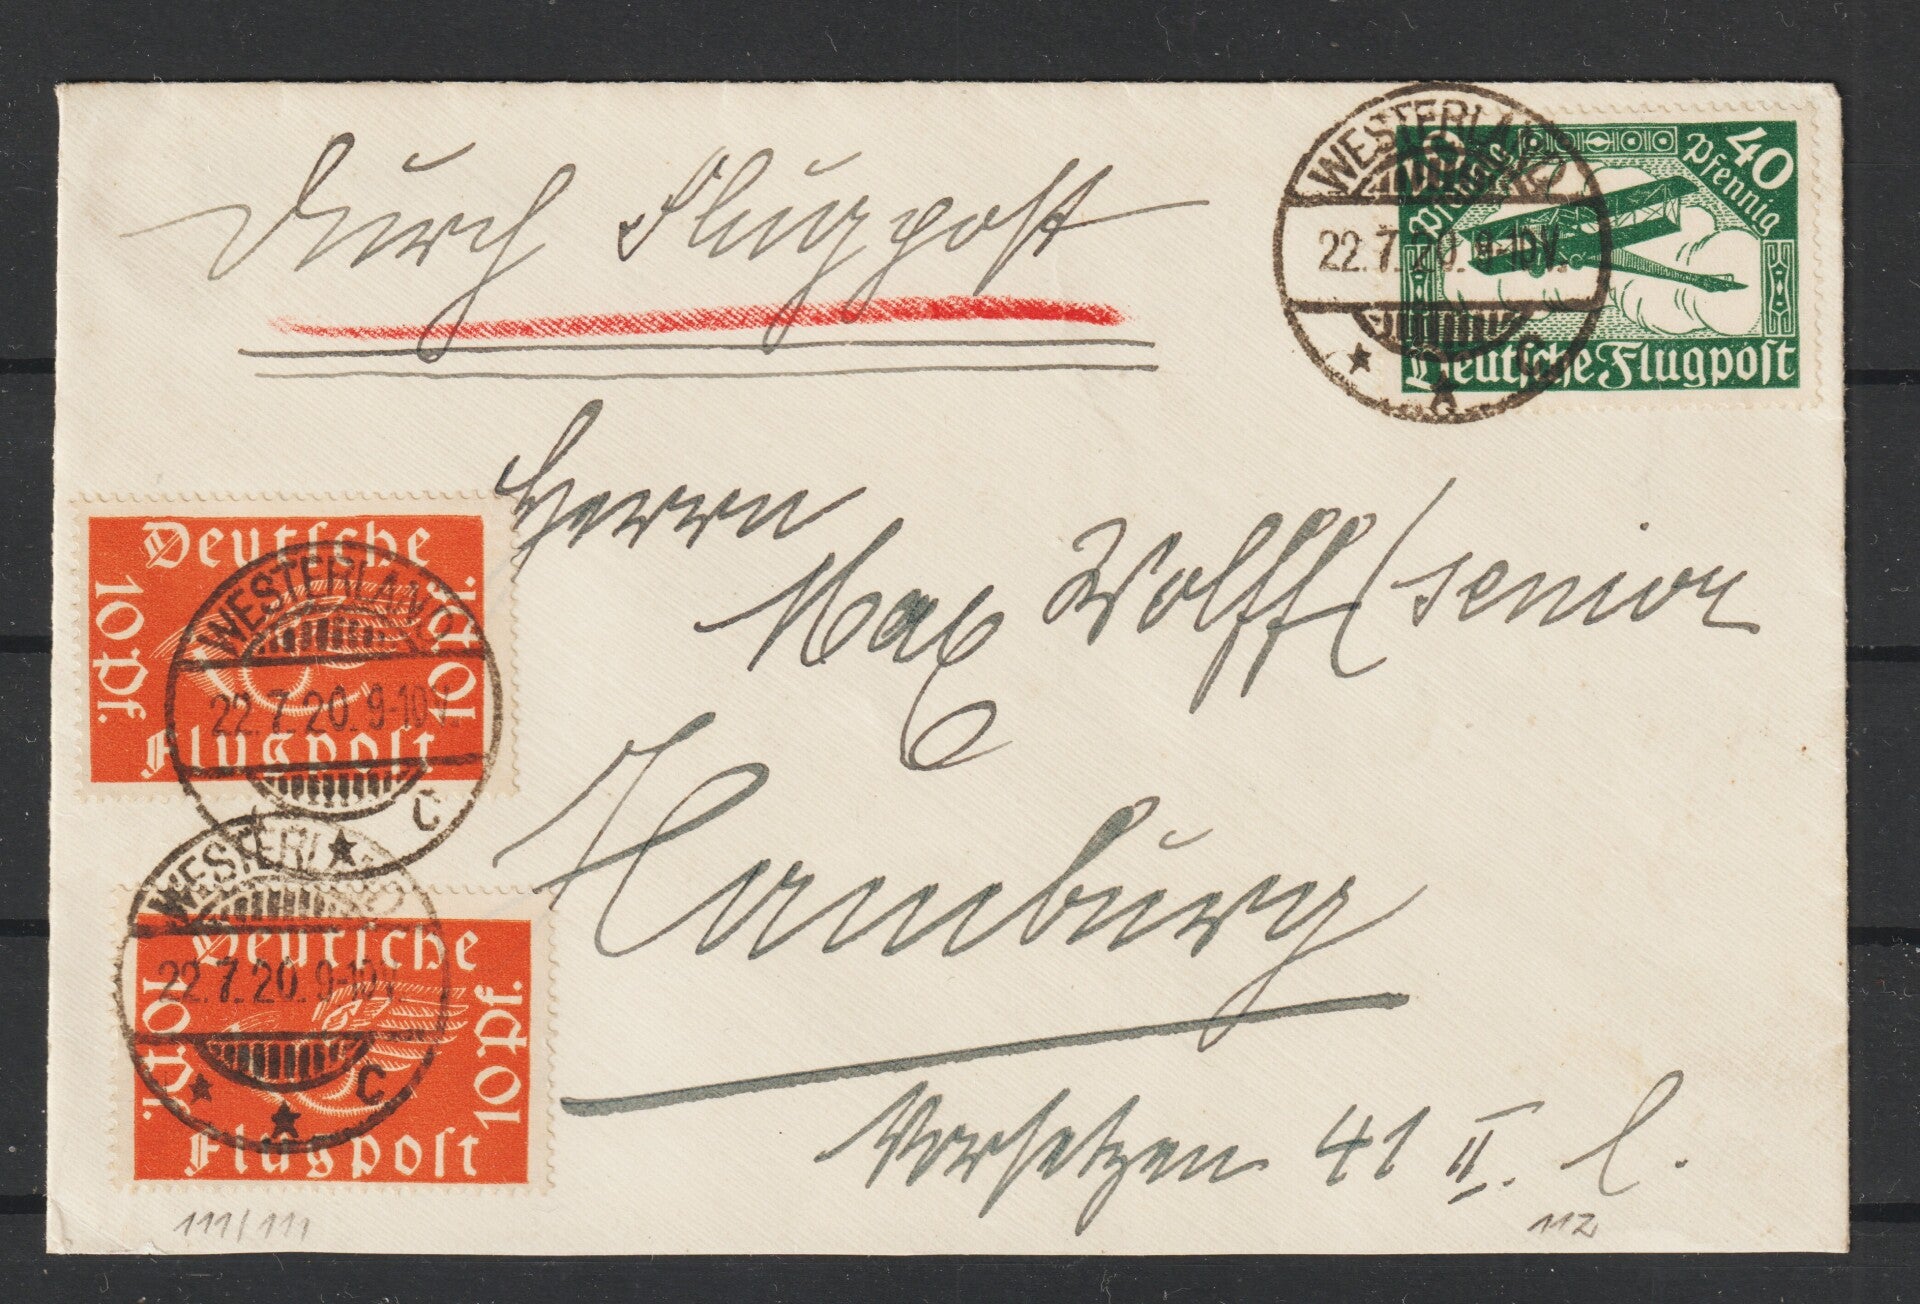 Durch Flugpost
WESTERLAND
22.7.20.9-10V.
* A C
40
Pfennig
Deutsche Flugpost
Herrn
Max Wolff senior
Hamburg
Vorsetzen 41 II. l.
Deutsche
10 Pf.
10 Pf.
Flugpost
WESTERLAND
22.7.20.9-10V.
* C
WESTERLAND
22.7.20.9-10V.
* * C
Deutsche
10 Pf.
10 Pf.
Flugpost
111/111
112